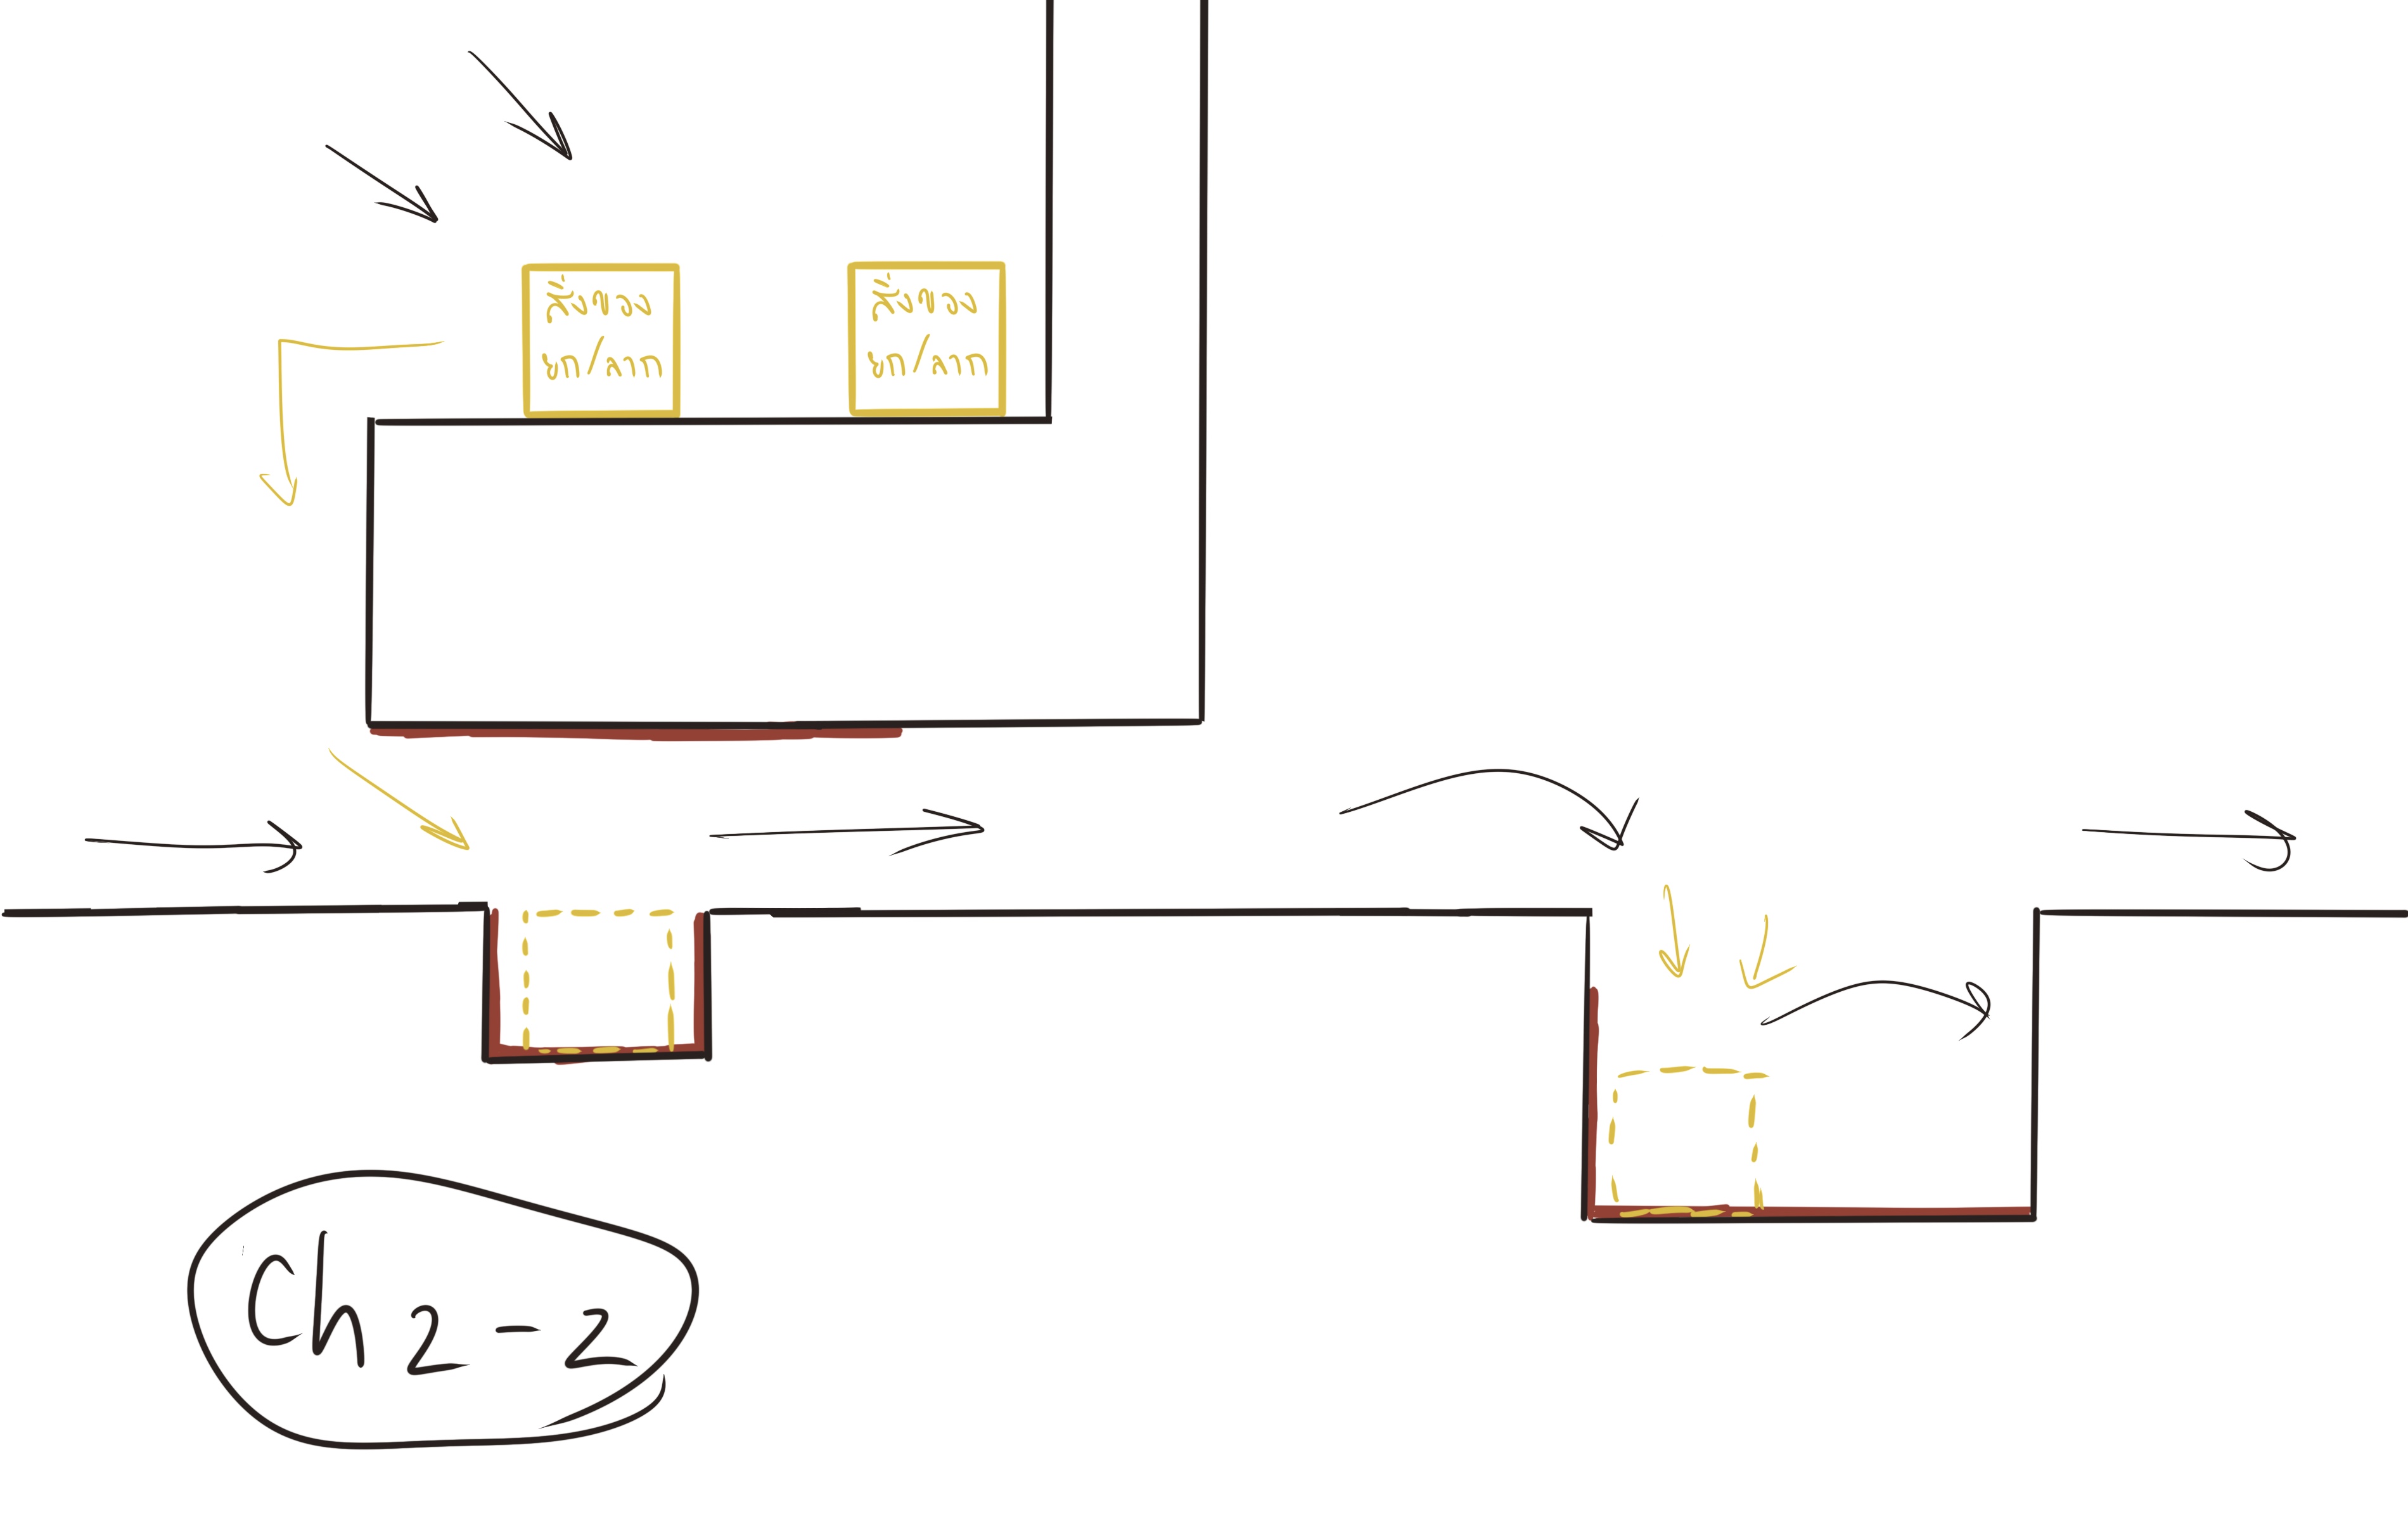 สิ่งของ
ยก/ลาก
สิ่งของ
ยก/ลาก
Ch 2-2